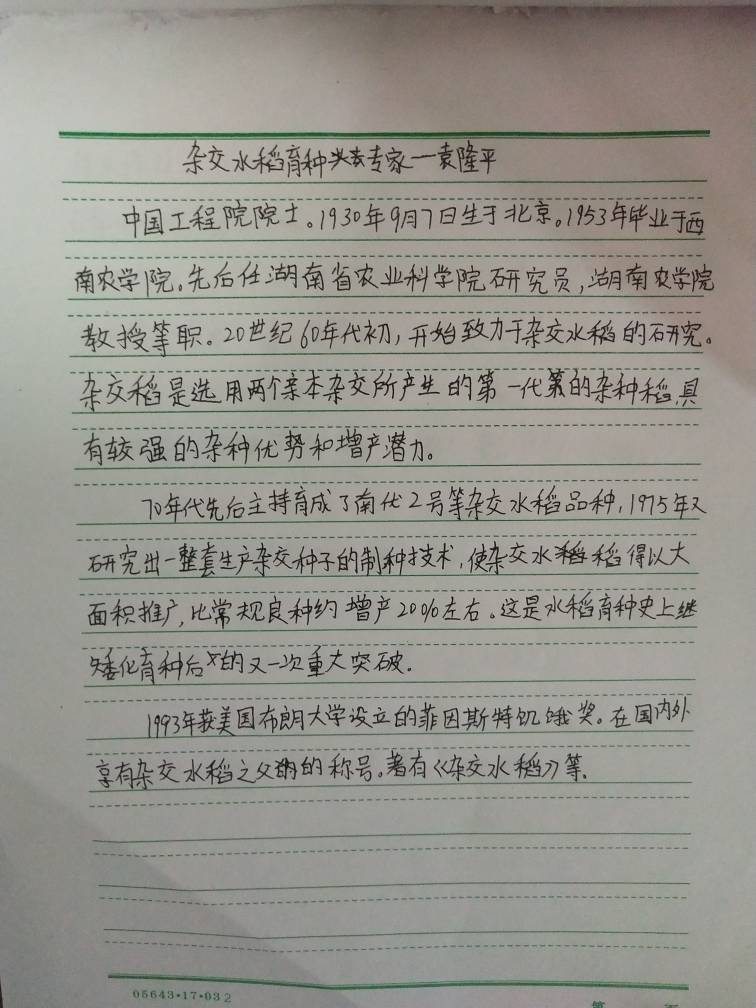 杂交水稻育种专家一袁隆平
中国工程院院士。1930年9月7日生于北京。1953年毕业于西
南农学院。先后任湖南省农业科学院研究员,湖南农学院
教授等职。20世纪60年代初,开始致力于杂交水稻的研究。
杂交稻是选用两个亲本杂交所产生的第一代的杂种稻,具
有较强的杂种优势和增产潜力。
70年代先后主持育成了南优2号等杂交水稻品种,1975年又
研究出一整套生产杂交种子的制种技术,使杂交水稻得以大
面积推广,比常规良种约增产20%左右。这是水稻育种史上继
矮化育种后的又一次重大突破.
1993年获美国布朗大学设立的菲因斯特饥饿奖。在国内外
享有杂交水稻之父的称号。著有《杂交水稻》等.
05643·17·032
第 页